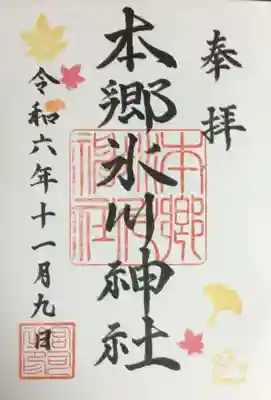 奉拝
本郷氷川神社
本郷
氷川
神社
令和六年十一月九日